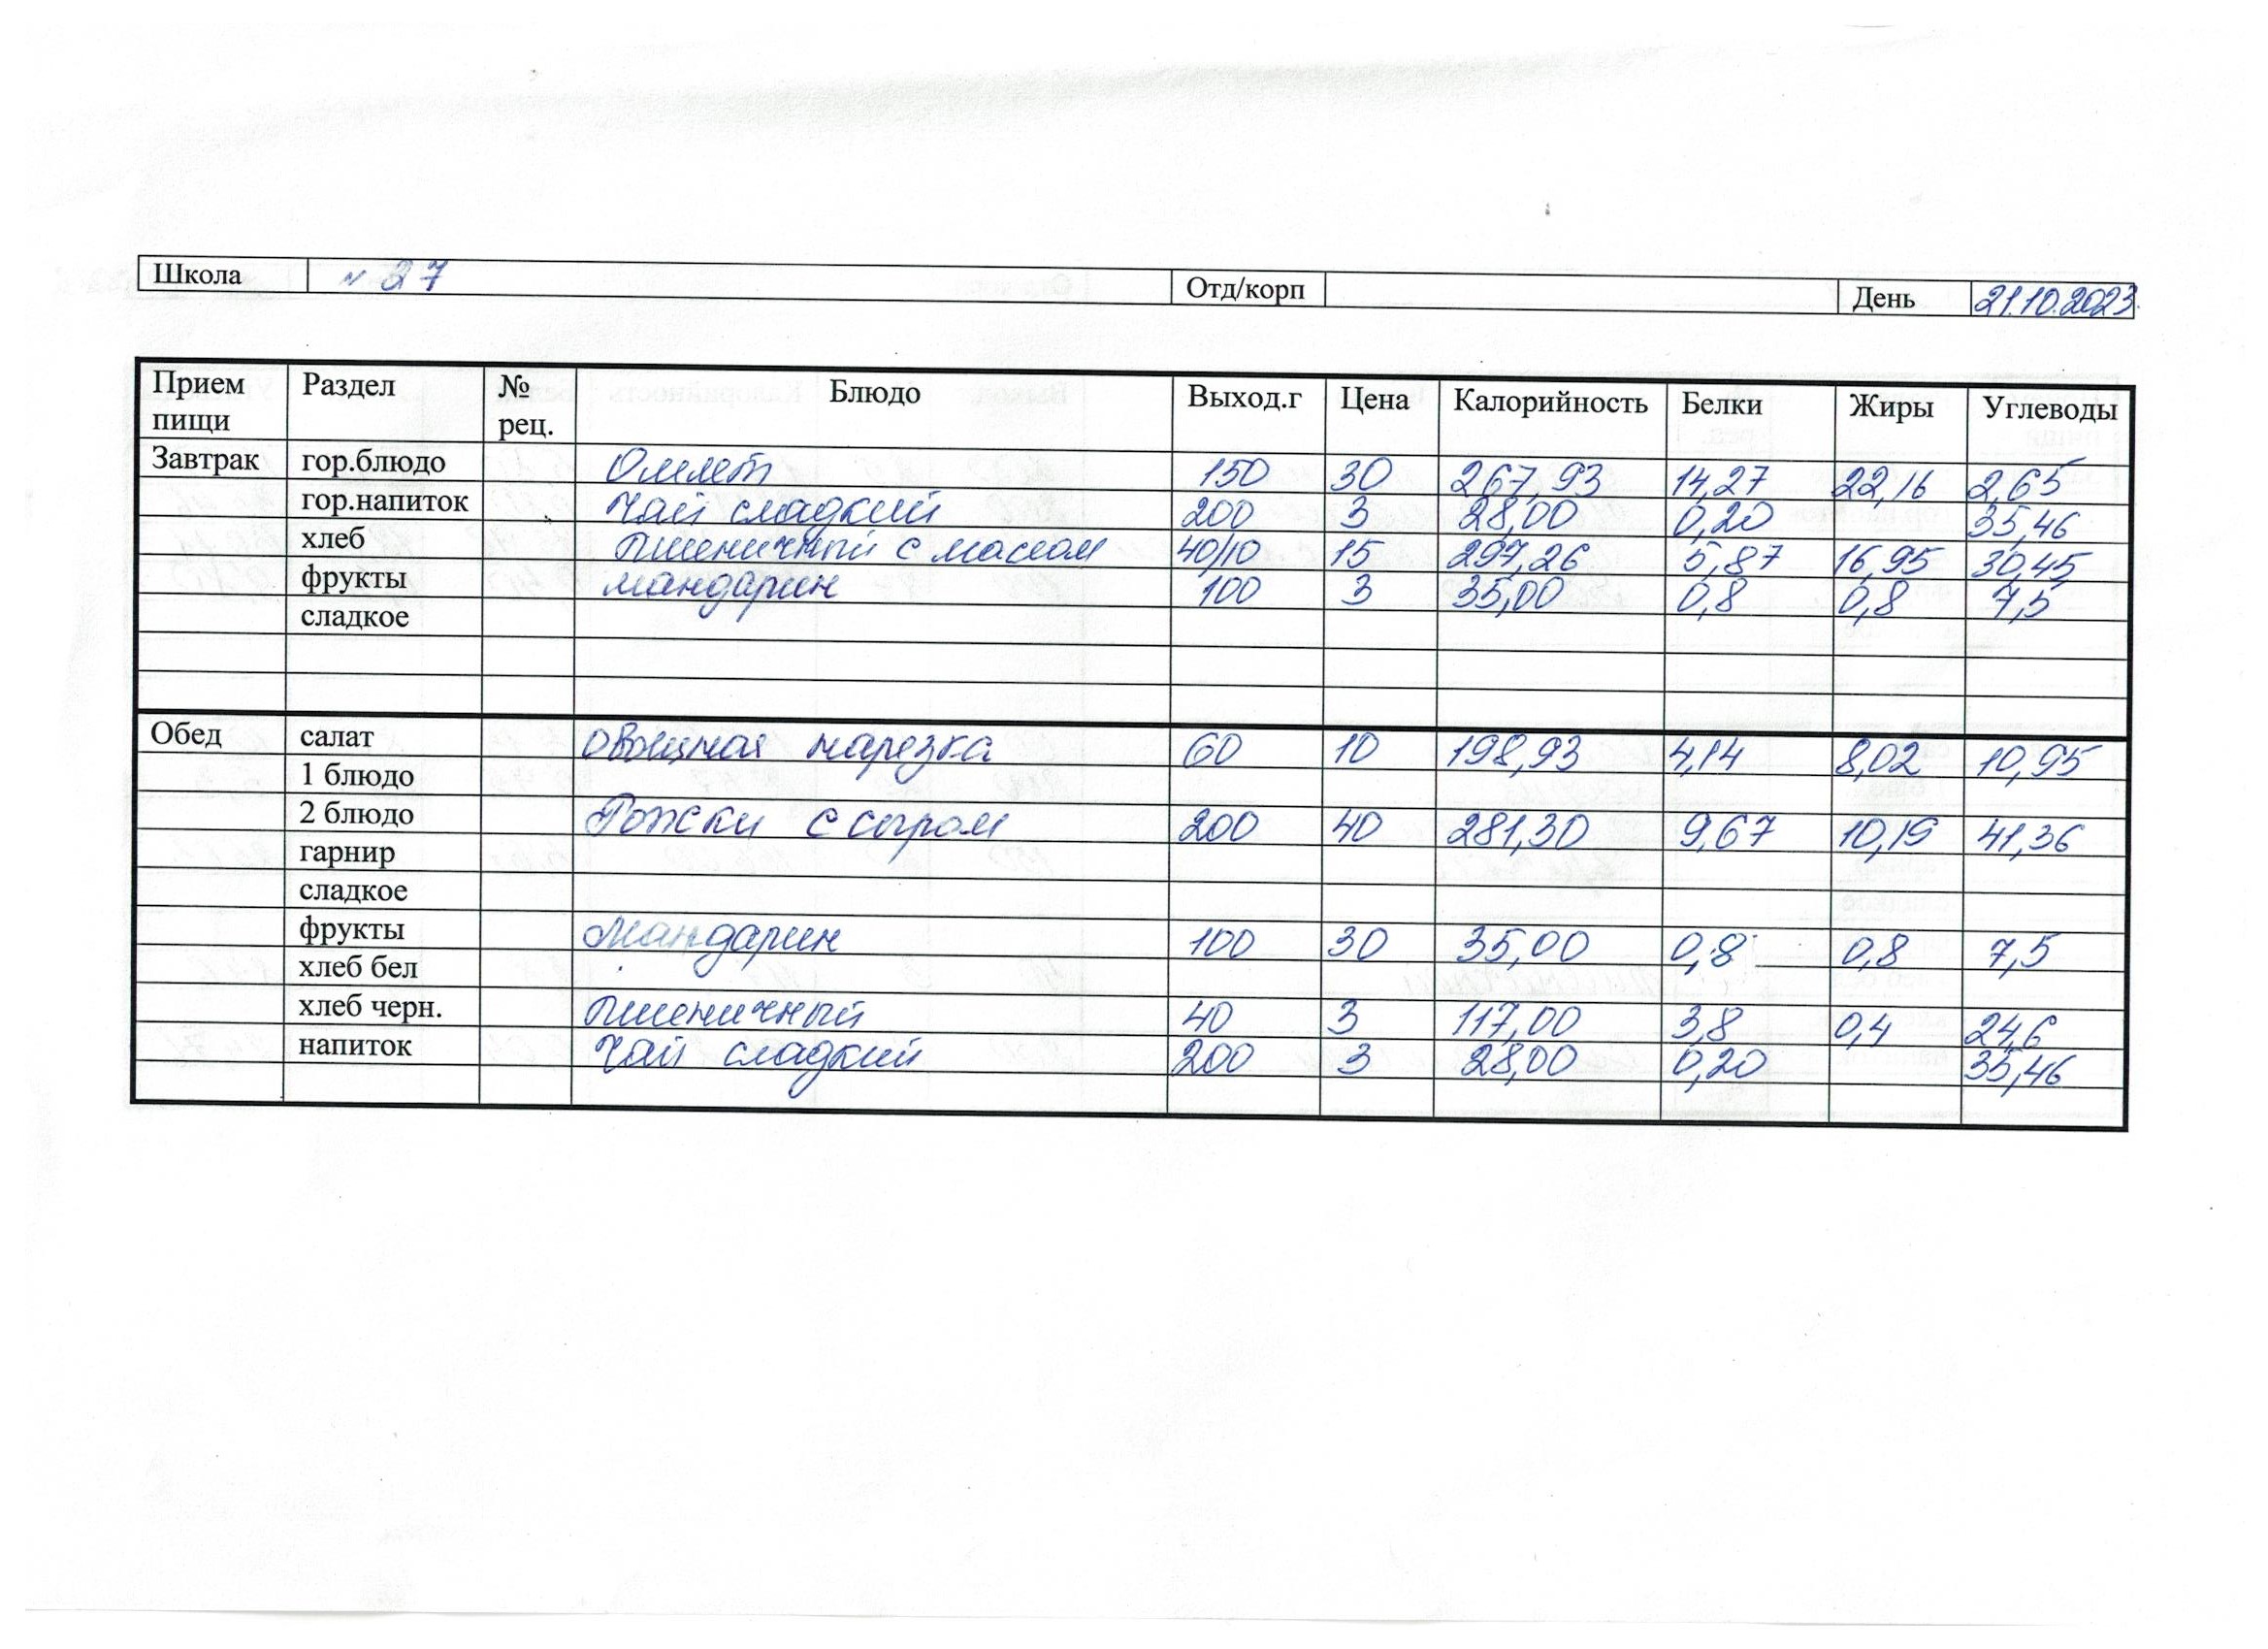 Школа № 27 Отд/корп День 21.10.2023
Прием пищи Раздел № рец. Блюдо Выход.г Цена Калорийность Белки Жиры Углеводы
Завтрак гор.блюдо Омлет 150 30 267,93 14,27 22,16 2,65
гор.напиток Чай сладкий 200 3 28,00 0,20 35,46
хлеб пшеничный с маслом 40/10 15 297,26 5,87 16,95 30,45
фрукты мандарин 100 3 35,00 0,8 0,8 7,5
сладкое
Обед салат овощная нарезка 60 10 198,93 4,14 8,02 10,95
1 блюдо
2 блюдо Рожки с сыром 200 40 281,30 9,67 10,19 41,36
гарнир
сладкое
фрукты Мандарин 100 30 35,00 0,8 0,8 7,5
хлеб бел
хлеб черн. пшеничный 40 3 117,00 3,8 0,4 24,6
напиток Чай сладкий 200 3 28,00 0,20 35,46